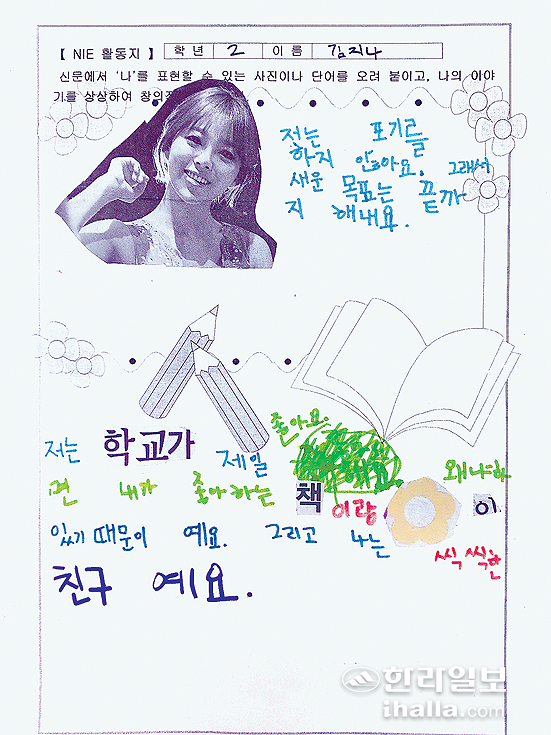 【 NIE 활동지 】 학 년 2 이 름 김지나
신문에서 '나'를 표현할 수 있는 사진이나 단어를 오려 붙이고, 나의 이야
기를 상상하여 창의
저는 포기를
하지 안아요. 그래서
새운 목표는 끝까
지 해내요.
저는 학교가 제일 좋아요.
왜냐하
면 내가 좋아하는 책 이랑 이
있기 때문이 예요. 그리고 나는 씩씩한
친구 예요.
한라일보
ihalla.com